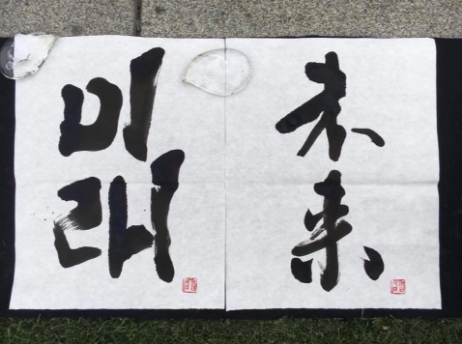 미래
未来